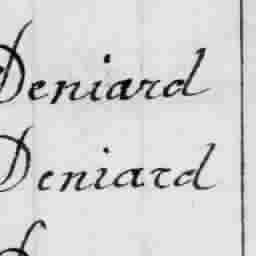 Deniard
Deniard